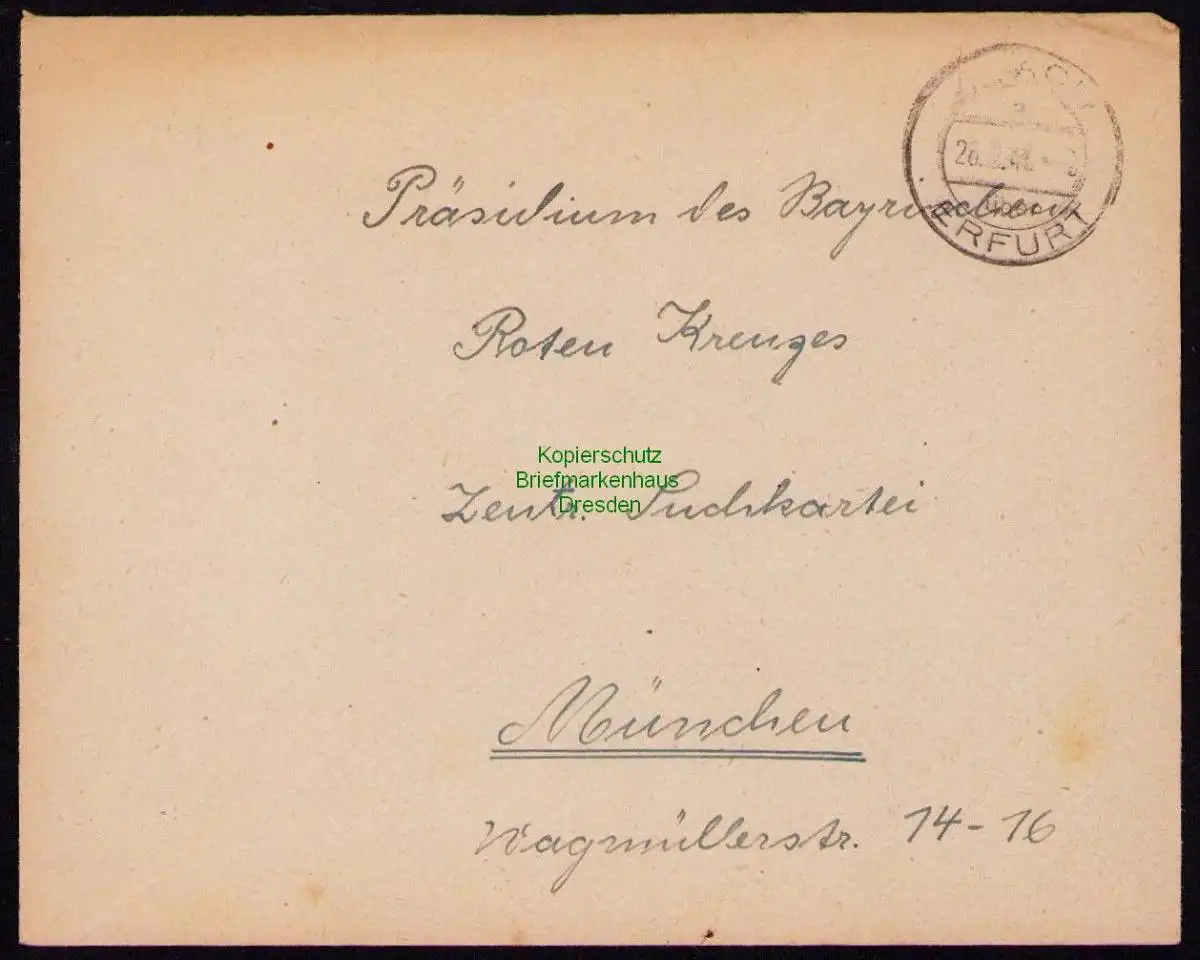 über
ERFURT
Präsidium des Bayrischen
Roten Kreuzes
Kopierschutz
Briefmarkenhaus
Dresden
Zentr. Suchkartei
München
Wagmüllerstr. 14-16